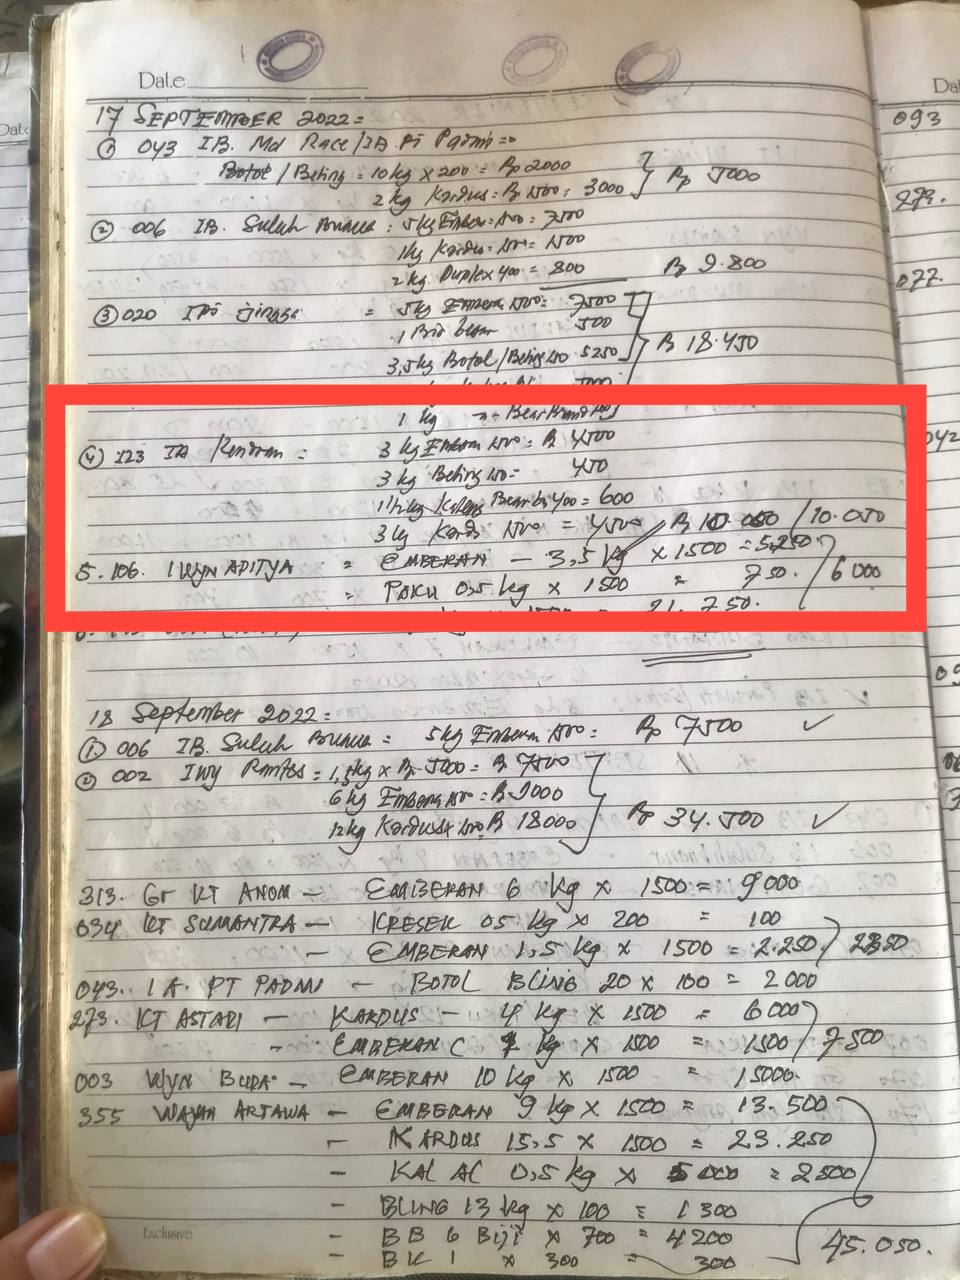 Date
17 SEPTEMBER 2022 =
① 043 IB. Md Race/IA Pt Padmi =
Botol / Beling = 10 kg x 200 = Rp 2000
2 kg Kardus = 1500 = 3000 Rp 5000
② 006 IB. Suluh = 5 kg Embern 1500 = 7500
1kg Kardus 1500 = 1500
2 kg Duplex 400 = 800 Rp 9.800
③ 020 = 5 kg Embern 1500 = 7500
1 500
3,5 kg Botol / Beling 5250 18.450
1 kg
④ 123 IA = 3 kg Embern 1500 = 4500
3 kg Beling 150 = 450
1 1/2 kg Kaleng 400 = 600
3 kg Kardus 1500 = 4500 10.050 / 10.050
5. 106. I WYN ADITYA = EMBERAN - 3,5 kg x 1500 = 5.250
= PAKU 0,5 kg x 1500 = 750. 6 000
21. 750.
18 September 2022 =
① 006 IB. Suluh = 5 kg Embern 1500 = Rp 7500 ✓
② 002 IWy = 1,5kg x Rp 5000 = 7500
6 kg Embern 1500 = 9000
12 kg Kardus x 1500 18000 Rp 34.500 ✓
313. Gr KT ANOM - EMBERAN 6 kg x 1500 = 9 000
034 KT SUMANTRA - KRESEK 05 kg x 200 = 100
- EMBERAN 1,5 kg x 1500 = 2.250 2350
043. I A. PT PADMI - BOTOL BLING 20 x 100 = 2 000
273. KT ASTARI - KARDUS - 4 kg x 1500 = 6 000
- EMBERAN C 1 kg x 1500 = 1500 7500
003 WYN BUDA - EMBERAN 10 kg x 1500 = 15000
355 WAYAN ARTAWA - EMBERAN 9 kg x 1500 = 13.500
- KARDUS 15,5 x 1500 = 23.250
- KAL AL 0,5 kg x 5 000 = 2 500
- BLING 13 kg x 100 = 1 300
- BB 6 Biji x 700 = 4200
- BK 1 x 300 = 300 45.050.
Exclusive
093
273.
077.